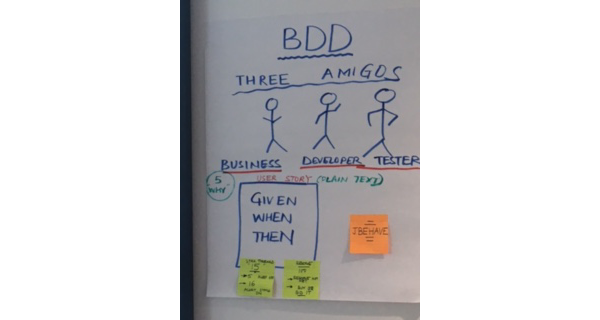 BDD
THREE AMIGOS
BUSINESS DEVELOPER TESTER
5 WHY
USER STORY (PLAIN TEXT)
GIVEN
WHEN
THEN
JBEHAVE